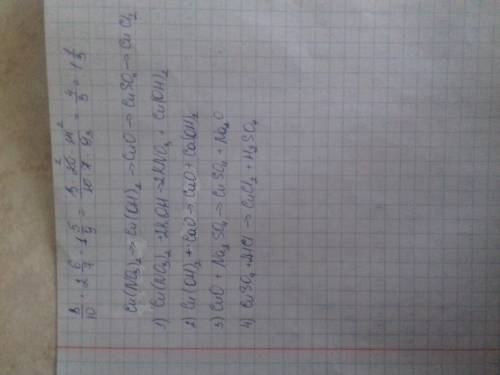 3/10 · 2 6/7 · 1 5/9 = 3 · 20 · 14 / 10 · 7 · 9 = 4/3 = 1 1/3
Cu(NO₃)₂ → Cu(OH)₂ → CuO → CuSO₄ → CuCl₂
1) Cu(NO₃)₂ + 2KOH → 2KNO₃ + Cu(OH)₂
2) Cu(OH)₂ + CaO → CuO + Ca(OH)₂
3) CuO + Na₂SO₄ → CuSO₄ + Na₂O
4) CuSO₄ + 2HCl → CuCl₂ + H₂SO₄